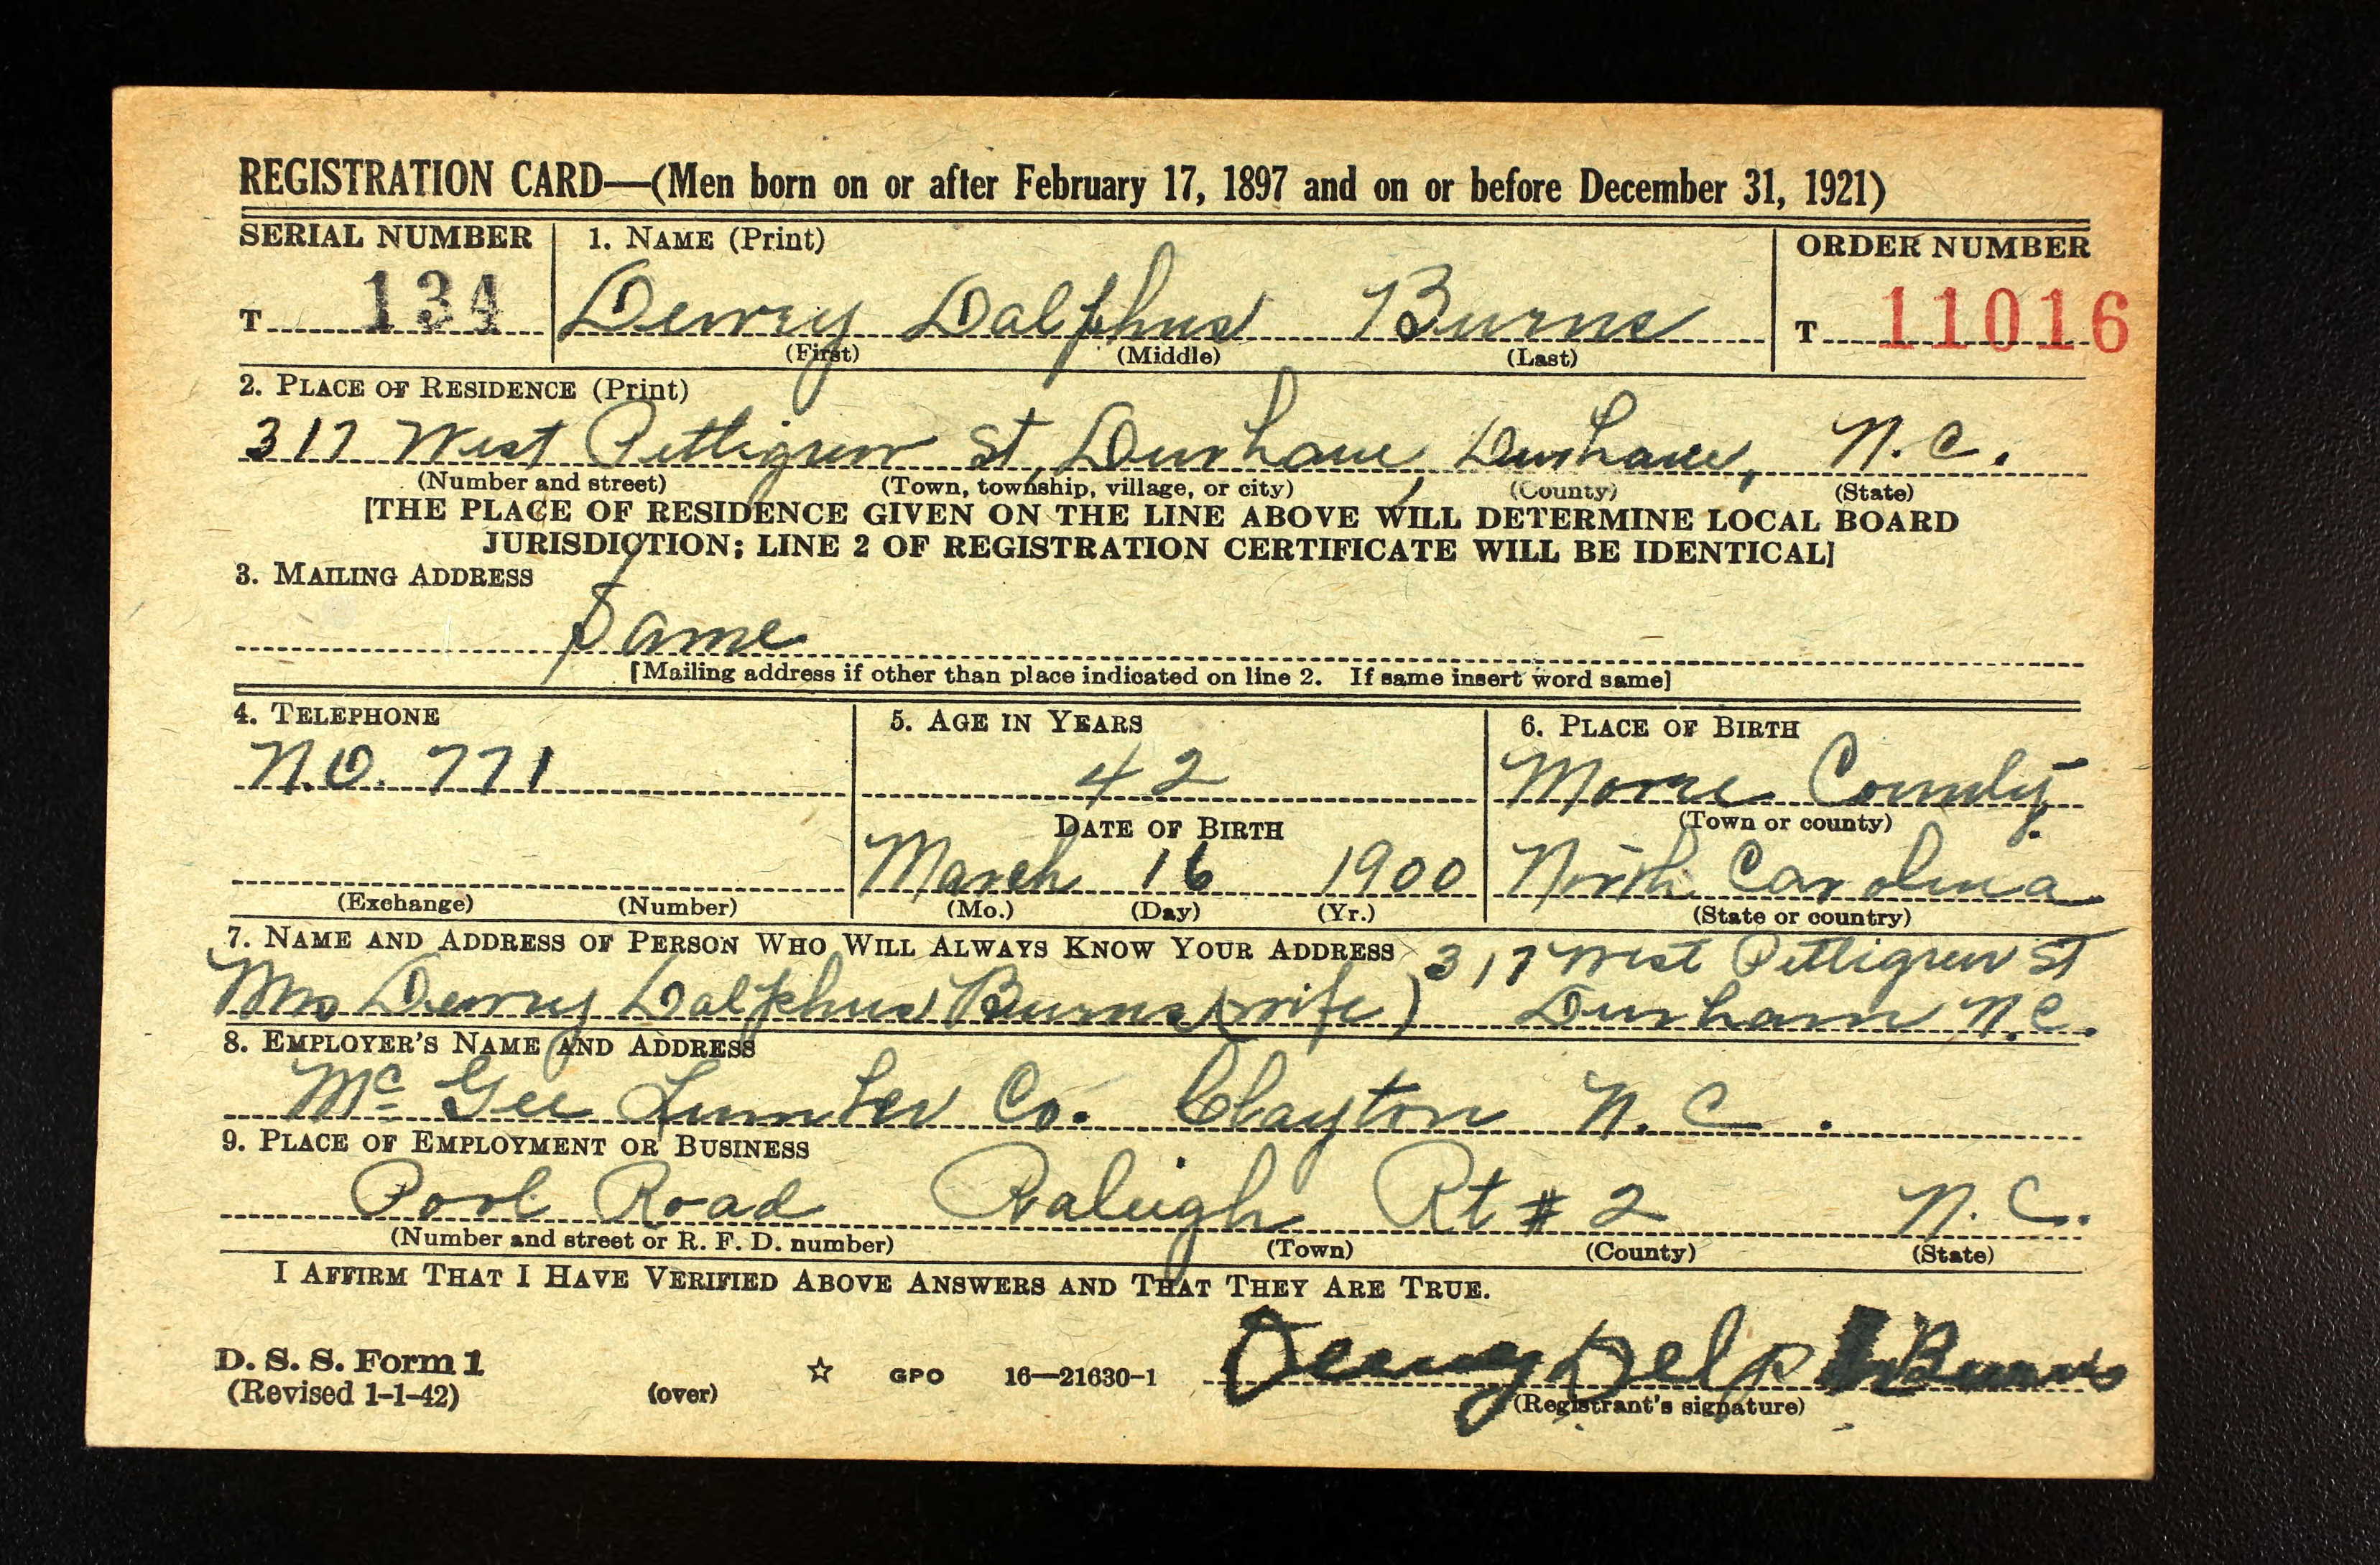 REGISTRATION CARD—(Men born on or after February 17, 1897 and on or before December 31, 1921)
SERIAL NUMBER 1. NAME (Print) ORDER NUMBER
T 134 Dewey Dalphus Burns T 11016
(First) (Middle) (Last)
2. PLACE OF RESIDENCE (Print)
317 West Pettigrew St, Durham, Durham, N.C.
(Number and street) (Town, township, village, or city) (County) (State)
[THE PLACE OF RESIDENCE GIVEN ON THE LINE ABOVE WILL DETERMINE LOCAL BOARD
JURISDICTION; LINE 2 OF REGISTRATION CERTIFICATE WILL BE IDENTICAL]
3. MAILING ADDRESS
Same
[Mailing address if other than place indicated on line 2. If same insert word same]
4. TELEPHONE 5. AGE IN YEARS 6. PLACE OF BIRTH
N.O. 771 42 Moore County
DATE OF BIRTH (Town or county)
March 16 1900 North Carolina
(Exchange) (Number) (Mo.) (Day) (Yr.) (State or country)
7. NAME AND ADDRESS OF PERSON WHO WILL ALWAYS KNOW YOUR ADDRESS 317 West Pettigrew St
Mrs Dewey Dalphus Burns (wife) Durham N.C.
8. EMPLOYER'S NAME AND ADDRESS
Mc Gee Lumber Co. Clayton N.C.
9. PLACE OF EMPLOYMENT OR BUSINESS
Pool Road Raleigh Rt # 2 N.C.
(Number and street or R. F. D. number) (Town) (County) (State)
I AFFIRM THAT I HAVE VERIFIED ABOVE ANSWERS AND THAT THEY ARE TRUE.
D. S. S. Form 1 Burns
(Revised 1-1-42) (over) ☆ GPO 16—21630-1 (Registrant's signature)